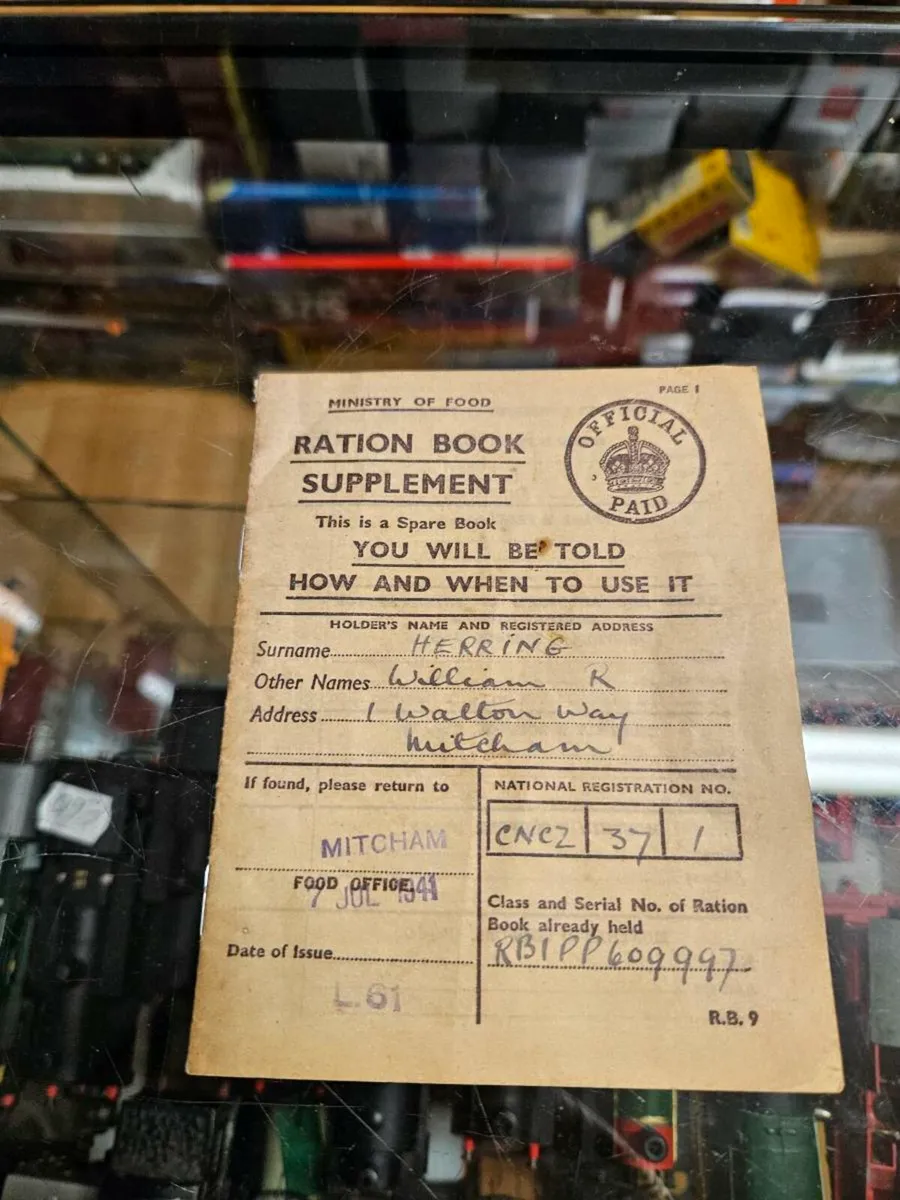 PAGE 1
MINISTRY OF FOOD
RATION BOOK
SUPPLEMENT
OFFICIAL
PAID
This is a Spare Book
YOU WILL BE TOLD
HOW AND WHEN TO USE IT
HOLDER'S NAME AND REGISTERED ADDRESS
Surname HERRING
Other Names William R
Address 1 Walton Way
Mitcham
If found, please return to
MITCHAM
FOOD OFFICE
7 JUL 1941
Date of Issue
L.61
NATIONAL REGISTRATION NO.
CNCZ 37 1
Class and Serial No. of Ration
Book already held
RB1PP609997
R.B. 9